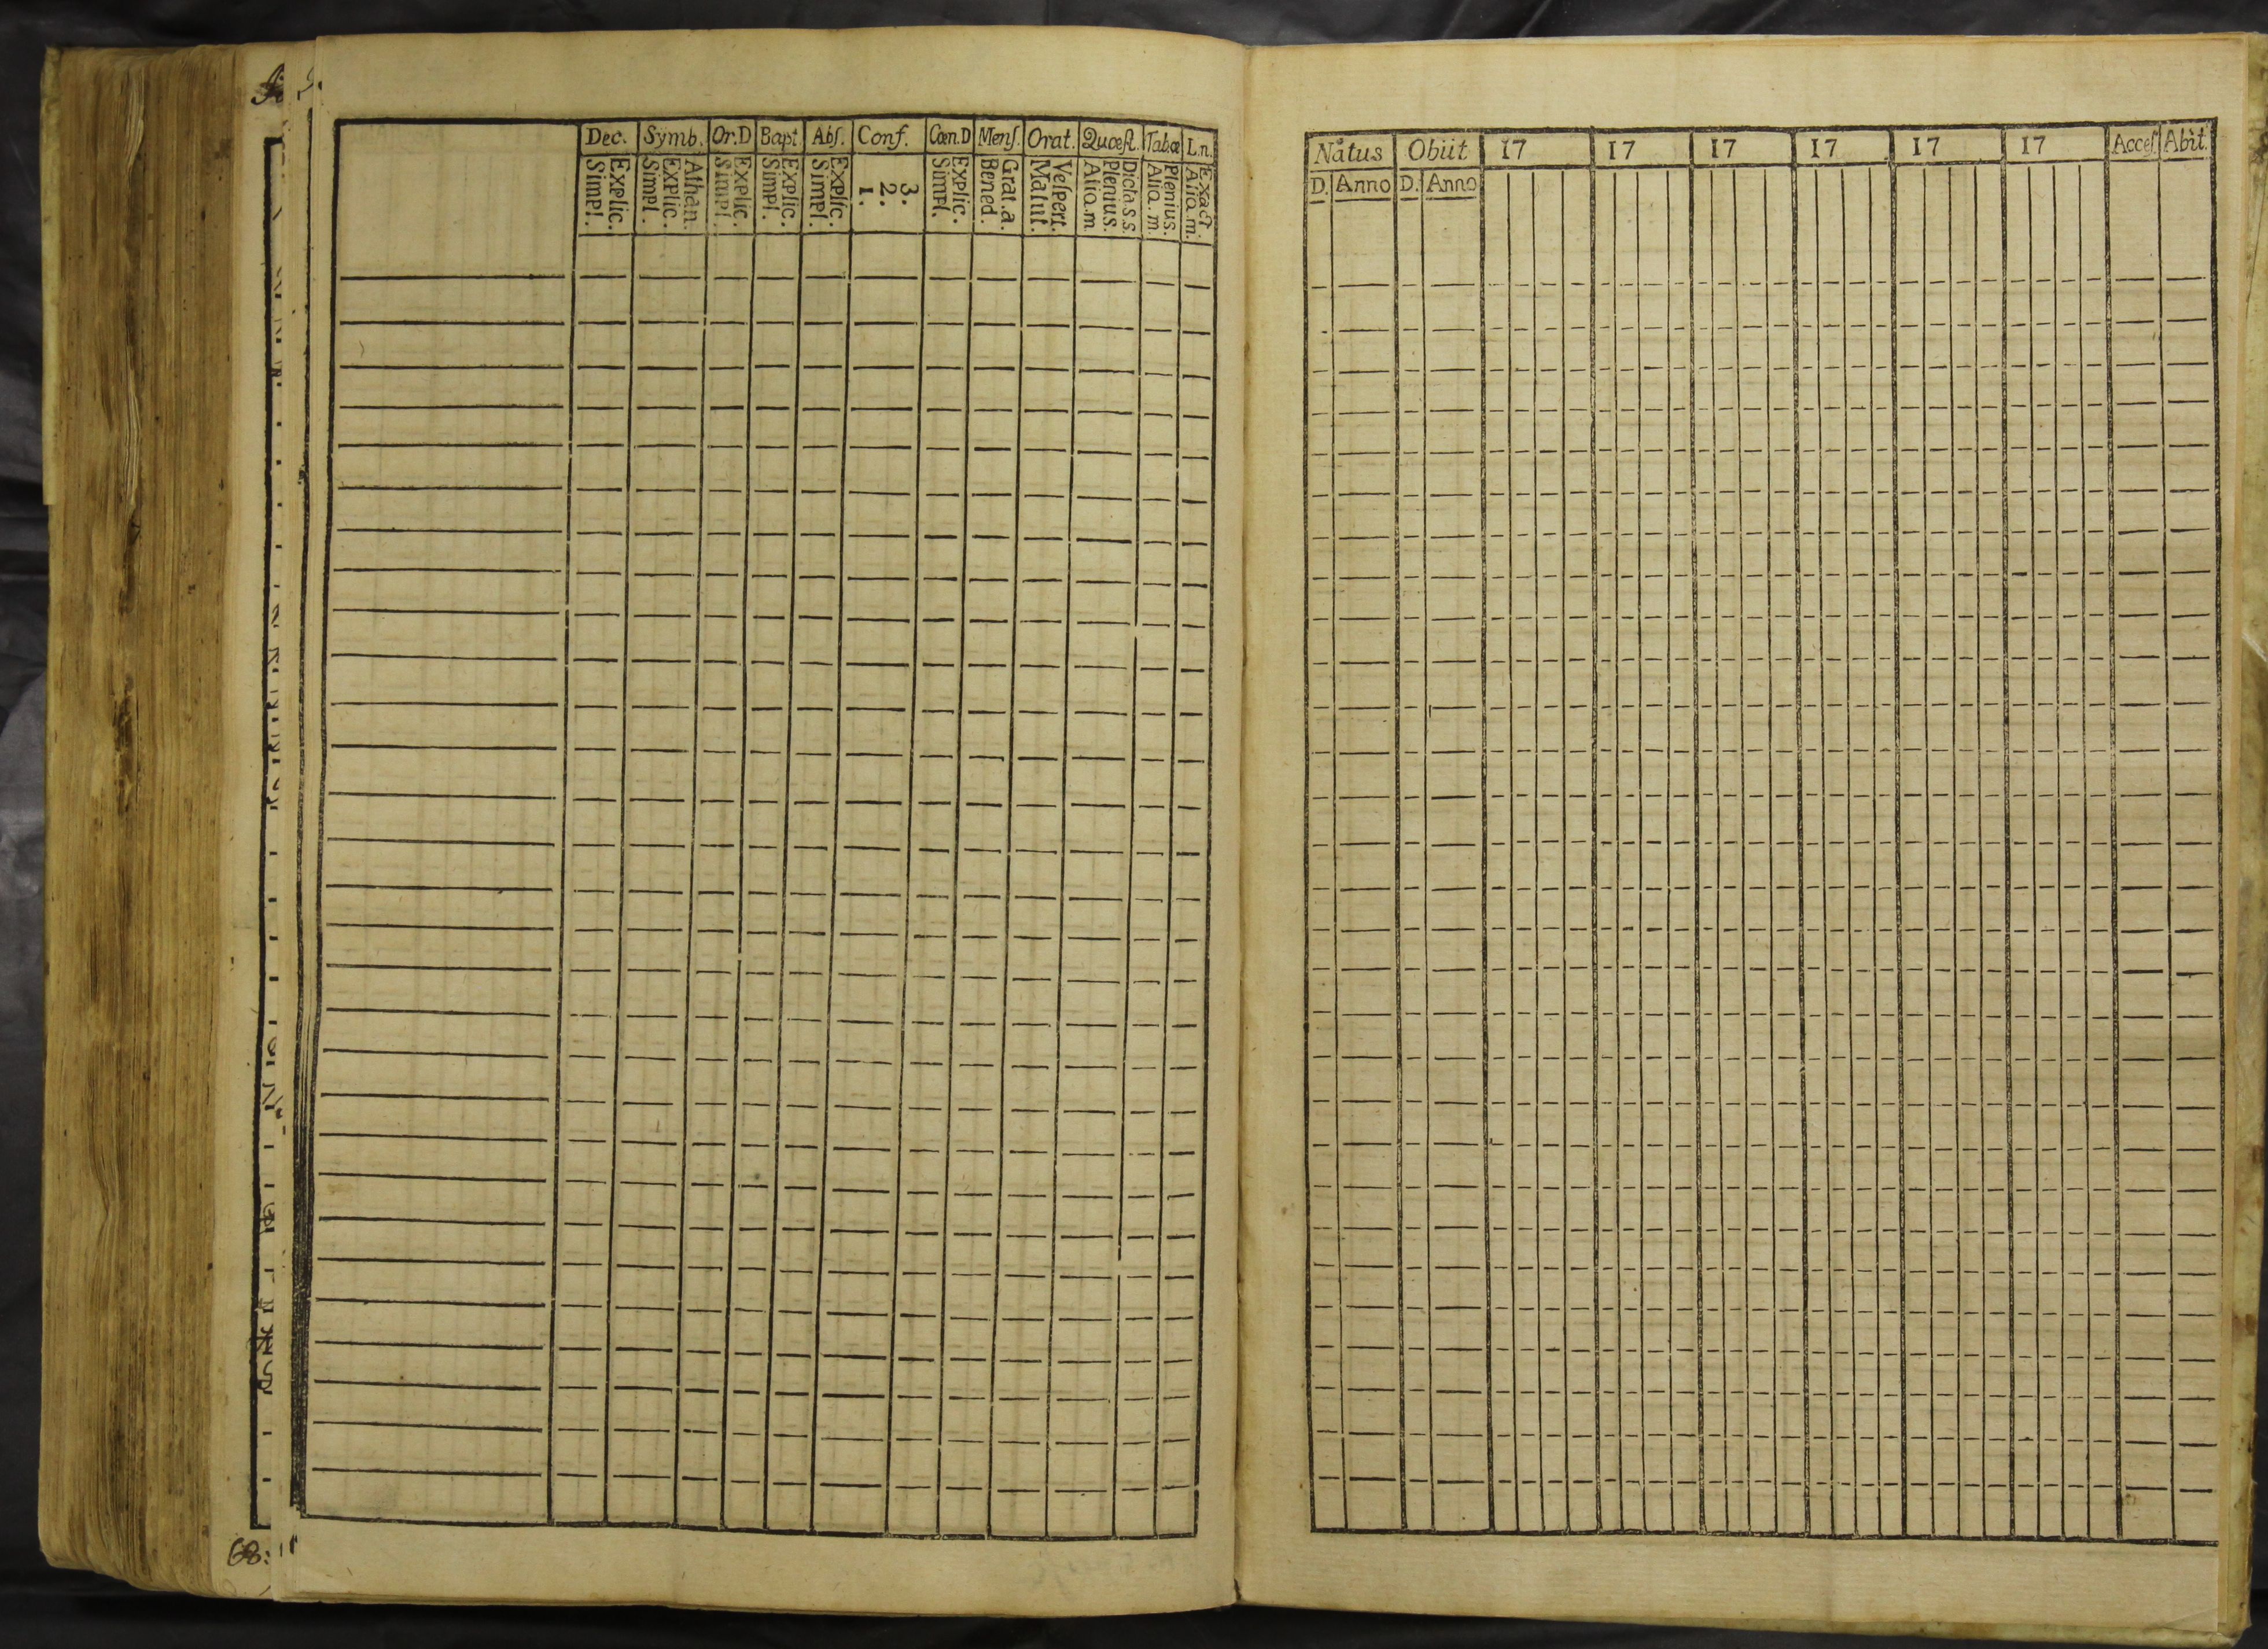 Dec. Symb. Or.D Bapt Abſ. Conf. Cœn.D Menſ. Orat. Quæſt. Tab.œ L.n.
Explic.
Simpl.
Athan.
Explic.
Simpl.
Explic.
Simpl.
Explic.
Simpl.
Explic.
Simpl.
3.
2.
1.
Explic.
Simpl.
Grat. a.
Bened.
Veſpert.
Matut.
Dicta s.s.
Plenius.
Aliq. m
Plenius.
Aliq. m.
Exact.
Aliq. m.
68:
Natus Obiit 17 17 17 17 17 17 Acceſ Abit.
D. Anno D. Anno